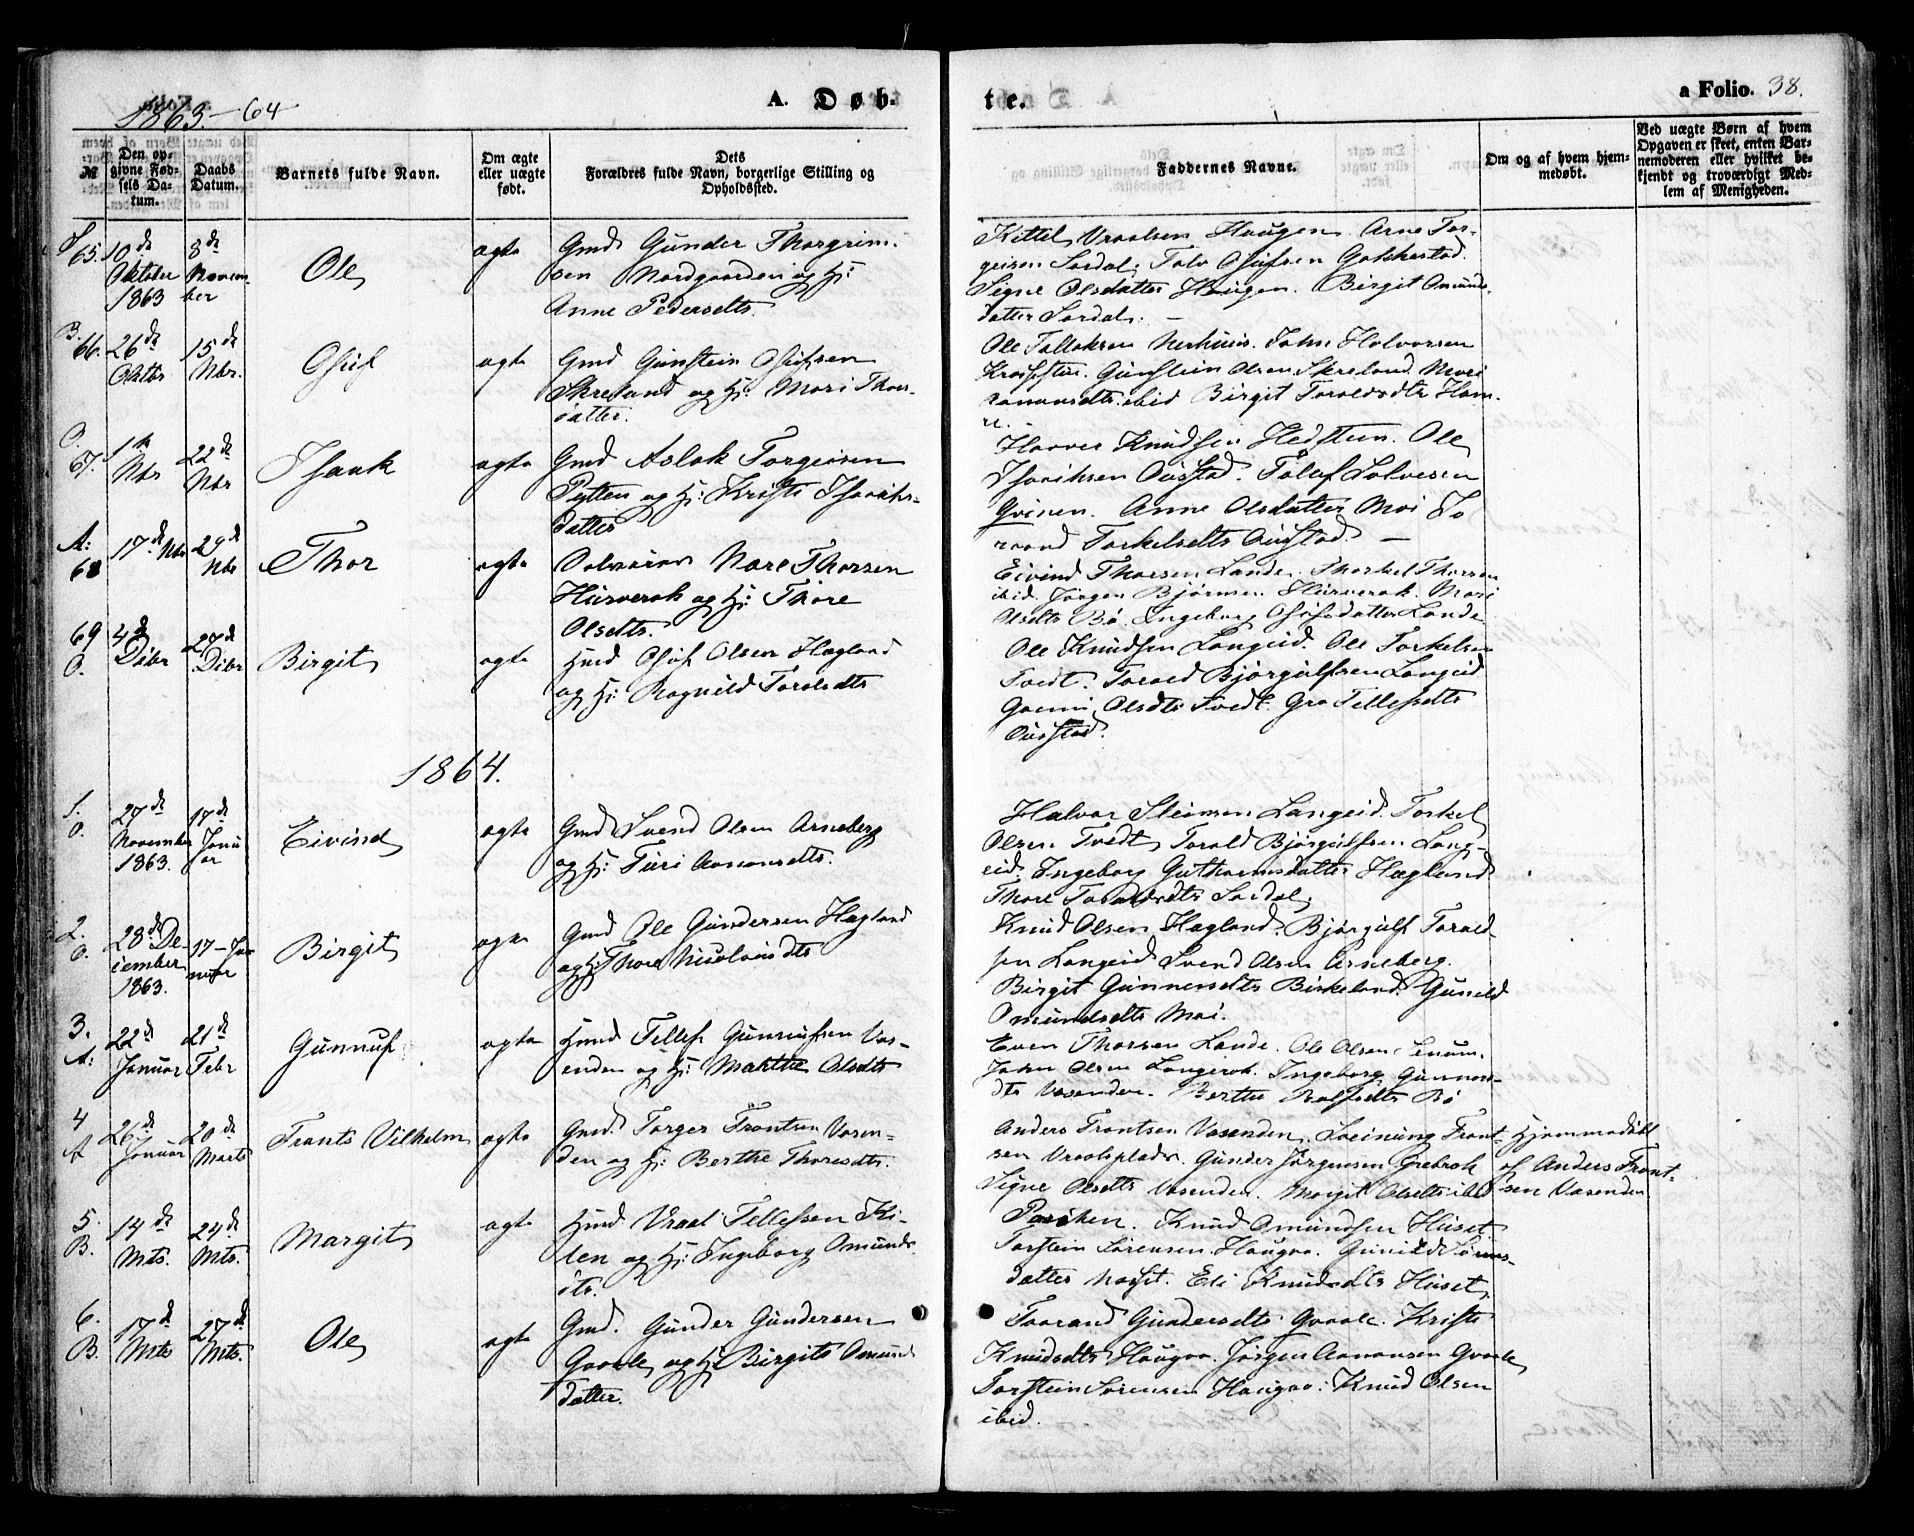 1863.-64
A. Døb-
te.
a Folio. 38.
№
Den op-
givne Fød-
sels Da-
tum.
Daabs
Datum.
Barnets fulde Navn.
Om ægte
eller uægte
født.
Dets
Forældres fulde Navn, borgerlige Stilling og
Opholdssted.
Faddernes Navne.
Om og af hvem hjem-
medøbt.
Ved uægte Børn af hvem
Opgaven er skeet, enten Bar-
nemoderen eller hvilket be-
kjendt og troværdigt Med-
lem af Menigheden.
65.
10de
Oktober
1863
8de
Novem-
ber
Ole
ægte
Gmd Gunder Thorgrim-
sen Nordgaarden og Hu:
Anne Pedersdtr.
Kittel Vraalsen Haugen. Arne Tor-
geirsen Sordal, Talv Osufsen Gakkestad.
Signe Olsdatter Haugen. Birgit Omunds-
datter Sordal. -
B.
66.
26de
Oktbr
15de
Nbr.
Osuf
ægte
Gmd Gunstein Osufsen
Skreland og H: Mari Thors-
datter.
Ole Tallaksen Nerhuus. John Halvorsen
Gunstein Olsen Skreland. Mari
Aanonsdtr. ibid Birgit Taraldsdtr Ham-
re.
O.
67.
1ste
Nbr
22de
Nbr
Isaak
ægte
Gmd Aslak Torgeirsen
Pytten og H: Kristi Isaaks-
datter
Haavor Knudsen Hedsteen. Ole
Isaaksen Austad. Tolof Salvesen
Gvinen. Anne Olsdatter Moi To
raand Torkelsdtr Austad. -
A:
68
17de Nbr
29de
Nbr
Thor
ægte
Nare Thorsen
Hurverak og H: Thore
Olsdtr.
Eivind Thorsen Lande. Thorkel Thorsen
ibid. Jørgen Bjørnsen Hurverak. Mari
Olsdtr Bø. Ingeborg Osufsdatter Lande
69
O.
4de
Debr
27de
Debr
Birgit
ægte
Hmd Osuf Olsen Hægland
og H: Ragnild Taraldsdtr
Ole Knudsen Langeid. Ole Torkelsen
Tvedt. Tarald Bjørgulfsen Langeid
Gunni Olsdtr Tvedt. Gro Tellefsdtr
Austad.
1864.
1.
O.
27de
November
1863.
17de
Janu
ar
Eivind
ægte
Gmd Svend Olsen Arneberg
og H: Turi Aanonsdtr.
Halvor Steinsen Langeid. Torkel
Olsen Tvedt, Tarald Bjørgulfsen Lang-
eid. Ingeborg Guthormsdatter Hægland
Thore Taraldsdtr Sordal.
2.
O.
28de De-
cember
1863.
17-Ja-
nuar
Birgit
ægte
Gmd Ole Gundersen Hægland
og H: Thore
Knud Olsen Hægland. Bjørgulf Tarald-
sen Langeid Svend Olsen Arneberg.
Birgit Gunnersdtr Birkeland. Gunild
Omundsdtr Moi.
3.
A:
22de
Januar
21de
Febr
Gunnuf
ægte
Hmd Tellef Gunnufsen Vas-
enden og H: Marthe Olsdtr
Even Thorsen Lande. Ole Olsen Senum.
John Olsen Langerak. Ingeborg Gunnars-
dtr Vasenden. Berthe Rolfsdtr Bø
4
A
26de
Januar
20de
Marts
Trants Vilhelm
ægte
Gmd. Torger Trontsen Vasen-
den og H: Berthe Thoresdtr.
Anders Trontsen Vasenden. Sveinung Tront-
sen Vraalsplads. Gunder Jørgensen Grebrok
Signe Olsdtr Vasenden. Margit Olsdtr ibid
Hjemmedøbt
af Anders Tront-
sen Vasenden.
5.
B.
14de
Mts.
24de
Mts.
Margit
ægte
Hmd Vraal Tellefsen Ki-
len og H: Ingeborg Omunds
dtr.
Knud Omundsen Huset
Torstein Sørensen Haugaa. Gunild Sørens-
datter Næset. Eli Knudsdtr Huset.
6.
B.
17de
Mts
27de
Mts.
Ole
ægte
Gmd. Gunder Gundersen
Gvaale og H: Birgit Omund
datter.
Taarand Gundersdtr Gvaale. Kristi
Knudsdtr Haugaa. Jørgen Aanonsen Gvaale
Torstein Sørensen Haugaa. Knud Olsen
ibid.